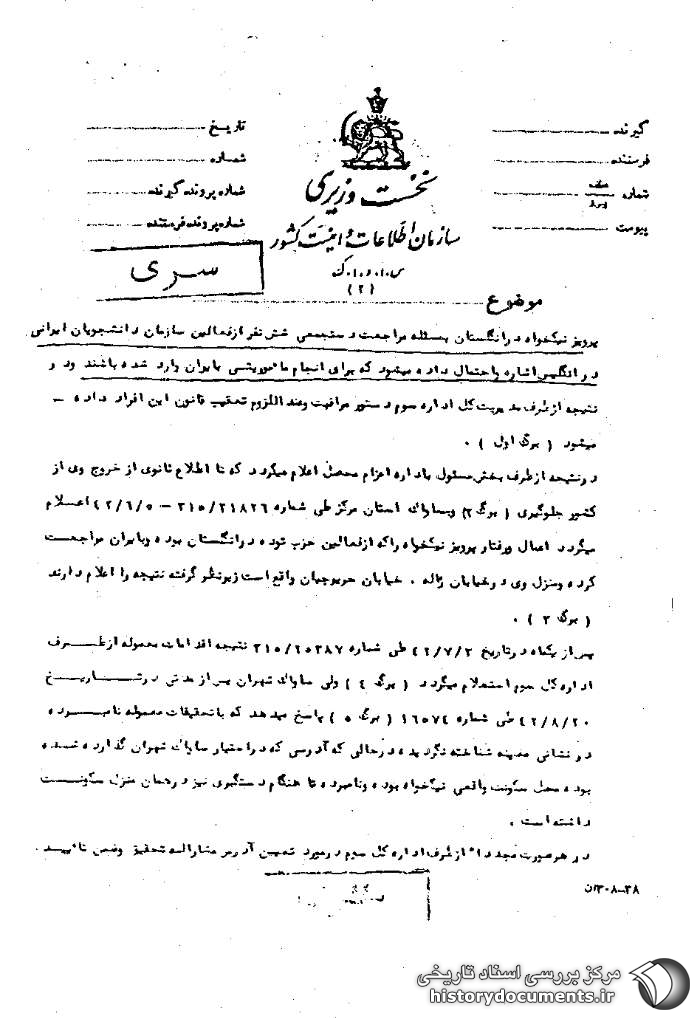 گیرنده
فرستنده
شماره
پیوست
تاریخ
شماره
شماره پرونده گیرنده
شماره پرونده فرستنده
نخست وزیری
سازمان اطلاعات و امنیت کشور
س.ا.و.ا.ک
(۲)
سری
موضوع
پرویز نیکخواه در انگلستان بمسئله مراجعت دستجمعی شش نفر ازفعالین سازمان دانشجویان ایرانی
در انگلیس اشاره واحتمال داده میشود که برای انجام ماموریتی بایران وارد شده باشند ود و
نتیجه ازطرف مدیریت کل اداره سوم دستور مراقبت وعند اللزوم تعقیب قانون این افراد داده -
میشود ( برگ اول ) .
درنتیجه ازطرف بخش مسئول باداره اعزام محصل اعلام میگردد که تا اطلاع ثانوی از خروج وی از
کشور جلوگیری ( برگ ۲) وبساواک استان مرکز طی شماره ۳۱۵/۲۱۸۲۶ - ۴۲/۶/۵ اعلام
میگردد اعمال ورفتار پرویز نیکخواه راکه ازفعالین حزب توده درانگلستان بوده وبایران مراجعت
کرده ومنزل وی درخیابان ژاله . خیابان خریوجیان واقع است زیرنظر گرفته نتیجه را اعلام دارند
( برگ ۳ ) .
پس از یکماه درتاریخ ۴۲/۷/۲ طی شماره ۳۱۵/۲۵۳۸۷ نتیجه اقدامات معموله ازطرف
اداره کل سوم استعلام میگردد ( برگ ۴ ) ولی ساواک تهران پس از مدتی درتاریخ
۴۲/۸/۲۰ طی شماره ۱۶۵۷۴ ( برگ ۵ ) پاسخ میدهد که با تحقیقات معموله نامبرده
در نشانی معینه شناخته نگردیده درحالی که آدرسی که در اختیار ساواک تهران گذارده شده
بوده محل سکونت واقعی نیکخواه بوده ونامبرده تا هنگام دستگیری نیز درهمان منزل سکونت
داشته است .
در هرصورت مجددا" ازطرف اداره کل سوم درمورد تعیین آدرس مشارالیه تحقیق وضمن تائید .
۳۰۸-۳۸ان
مرکز بررسی اسناد تاریخی
historydocuments.ir